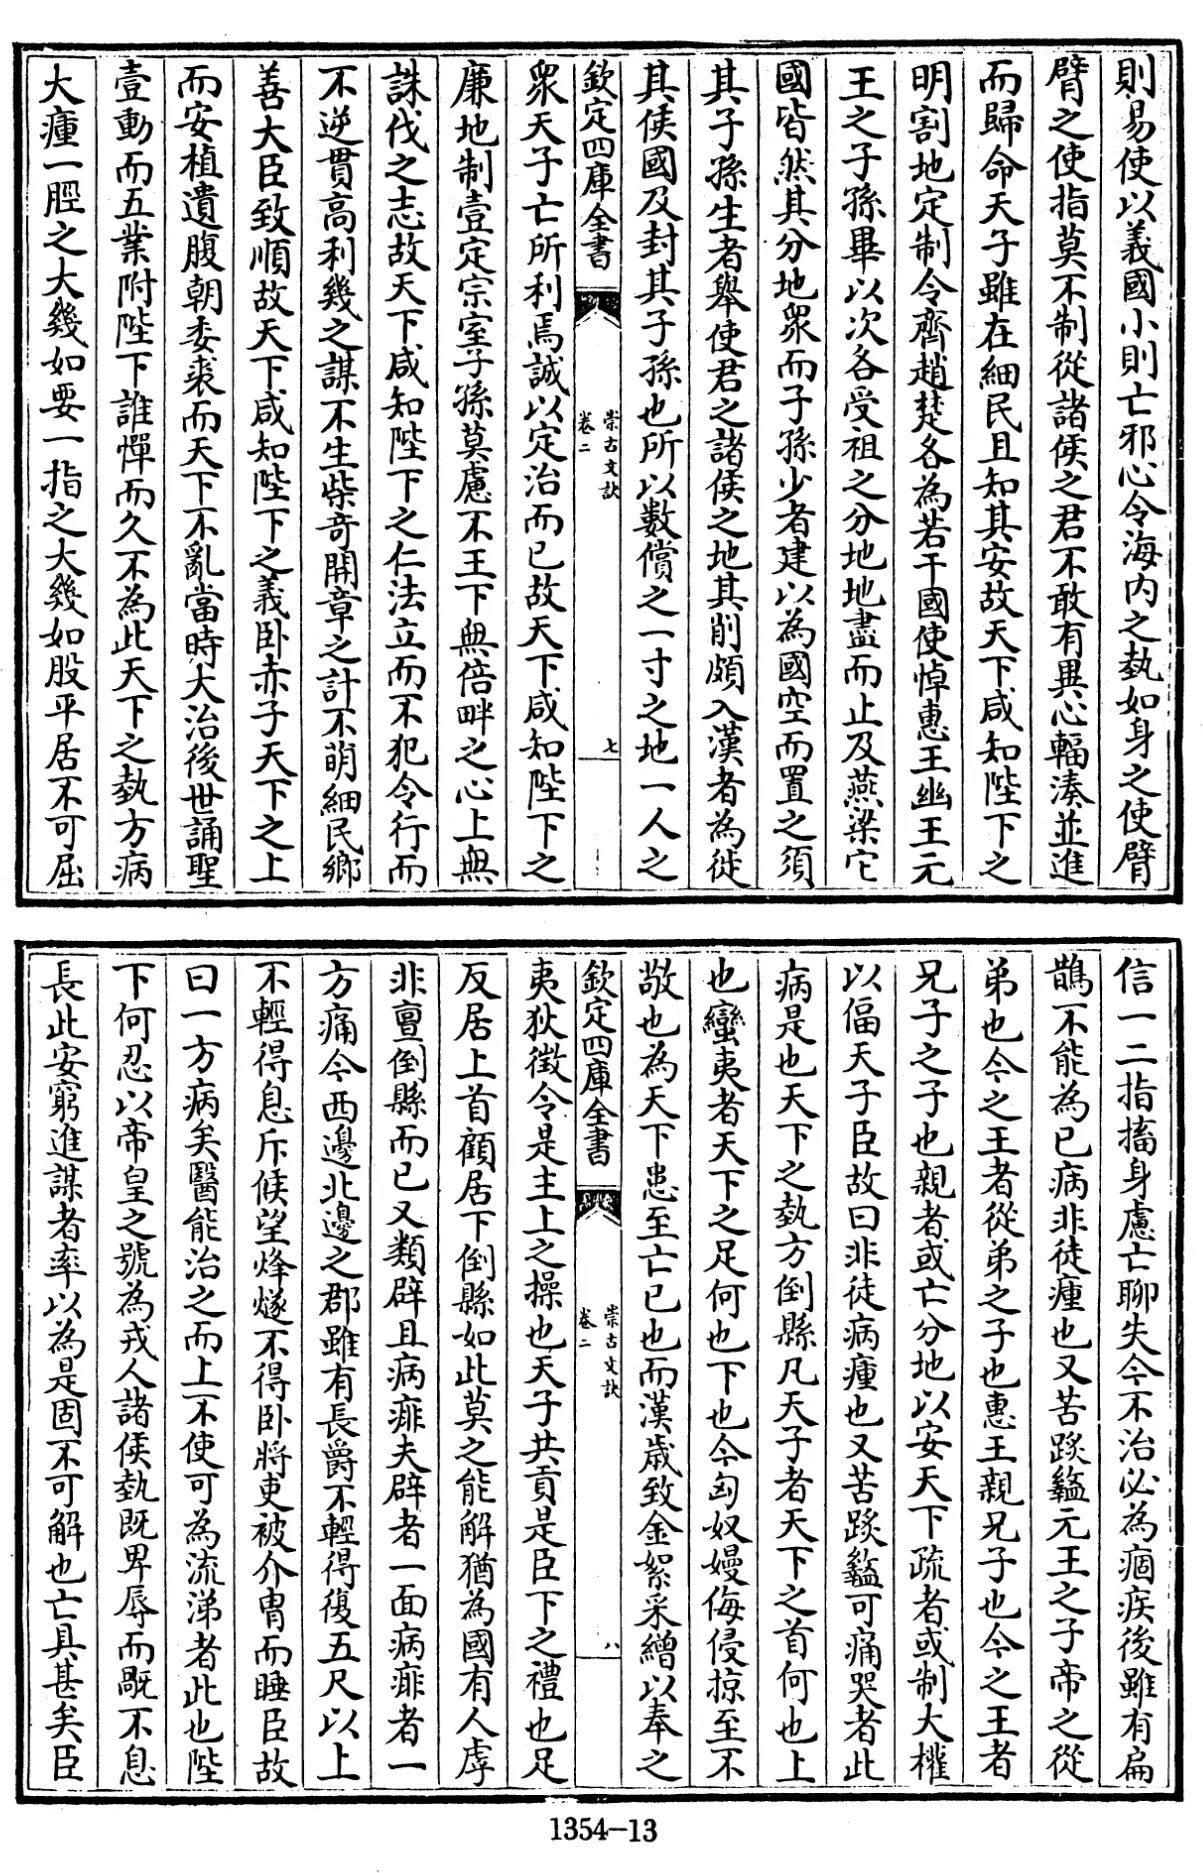 則易使以義國小則亡邪心令海内之埶如身之使臂
臂之使指莫不制從諸侯之君不敢有異心輻湊並進
而歸命天子雖在細民且知其安故天下咸知陛下之
明割地定制令齊趙楚各為若干國使悼惠王幽王元
王之子孫畢以次各受祖之分地地盡而止及燕梁它
國皆然其分地衆而子孫少者建以為國空而置之須
其子孫生者舉使君之諸侯之地其削頗入漢者為徙
其侯國及封其子孫也所以數償之一寸之地一人之
欽定四庫全書
崇古文訣
卷二
七
衆天子亡所利焉誠以定治而已故天下咸知陛下之
廉地制壹定宗室子孫莫慮不王下無倍畔之心上無
誅伐之志故天下咸知陛下之仁法立而不犯令行而
不逆貫高利幾之謀不生柴奇開章之計不萌細民鄉
善大臣致順故天下咸知陛下之義卧赤子天下之上
而安植遺腹朝委裘而天下不亂當時大治後世誦聖
壹動而五業附陛下誰憚而久不為此天下之埶方病
大瘇一脛之大幾如要一指之大幾如股平居不可屈
信一二指搐身慮亡聊失今不治必為痼疾後雖有扁
鵲不能為已病非徒瘇也又苦𨂂盭元王之子帝之從
弟也今之王者從弟之子也惠王親兄子也今之王者
兄子之子也親者或亡分地以安天下疏者或制大權
以偪天子臣故曰非徒病瘇也又苦𨂂盭可痛哭者此
病是也天下之埶方倒縣凡天子者天下之首何也上
也蠻夷者天下之足何也下也今匈奴嫚侮侵掠至不
敬也為天下患至亡已也而漢歲致金絮采繒以奉之
欽定四庫全書
崇古文訣
卷二
八
夷狄徵令是主上之操也天子共貢是臣下之禮也足
反居上首顧居下倒縣如此莫之能解猶為國有人虖
非亶倒縣而已又類辟且病痱夫辟者一面病痱者一
方痛今西邊北邊之郡雖有長爵不輕得復五尺以上
不輕得息斥候望烽燧不得卧將吏被介胄而睡臣故
曰一方病矣醫能治之而上不使可為流涕者此也陛
下何忍以帝皇之號為戎人諸侯埶既卑辱而旤不息
長此安窮進謀者率以為是固不可解也亡具甚矣臣
1354-13